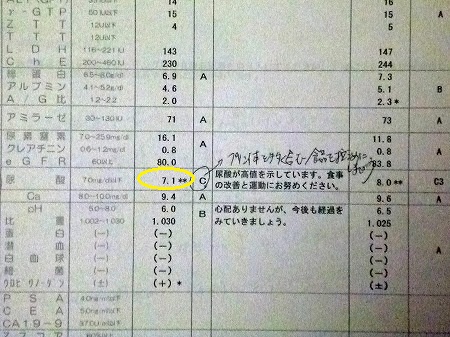 γ-GTP 50IU以下 15 15 A
ZTT 12U以下 4 5
TTT
LDH 116-221IU 143 147
ChE 200-460IU 230 244
総蛋白 6.5-8.0g/dl 6.9 A 7.3
アルブミン 4.1-5.2g/dl 4.6 5.1 B
A/G比 1.2-2.2 2.0 2.3 *
アミラーゼ 30-130IU 71 A 73 A
尿素窒素 7.0-25.9mg/dl 16.1 11.8
クレアチニン 0.6-1.2mg/dl 0.8 A 0.8 A
eGFR 60以上 80.0
プリン体を多く含む食品を控え
尿酸 7.0mg/dl以下 7.1 ** C 尿酸が高値を示しています。食事 8.0 ** C3
の改善と運動にお努めください。
Ca 8.0-10.0mg/dl 9.4 A 9.6 A
pH 5.0-8.0 6.0 B 心配ありませんが、今後も経過を 6.5
比重 1.002-1.030 1.030 みていきましょう。 1.025
蛋白 (-) (-) (-)
潜血 (-) (-) (-)
白血球 (-) (-) (-) A
細菌 (-) (-) (-)
ウロビリノーゲン (±) (+) * (±)
PSA 4.0ng/ml以下
CEA 5.0ng/ml以下
CA19-9 37.0U/ml以下